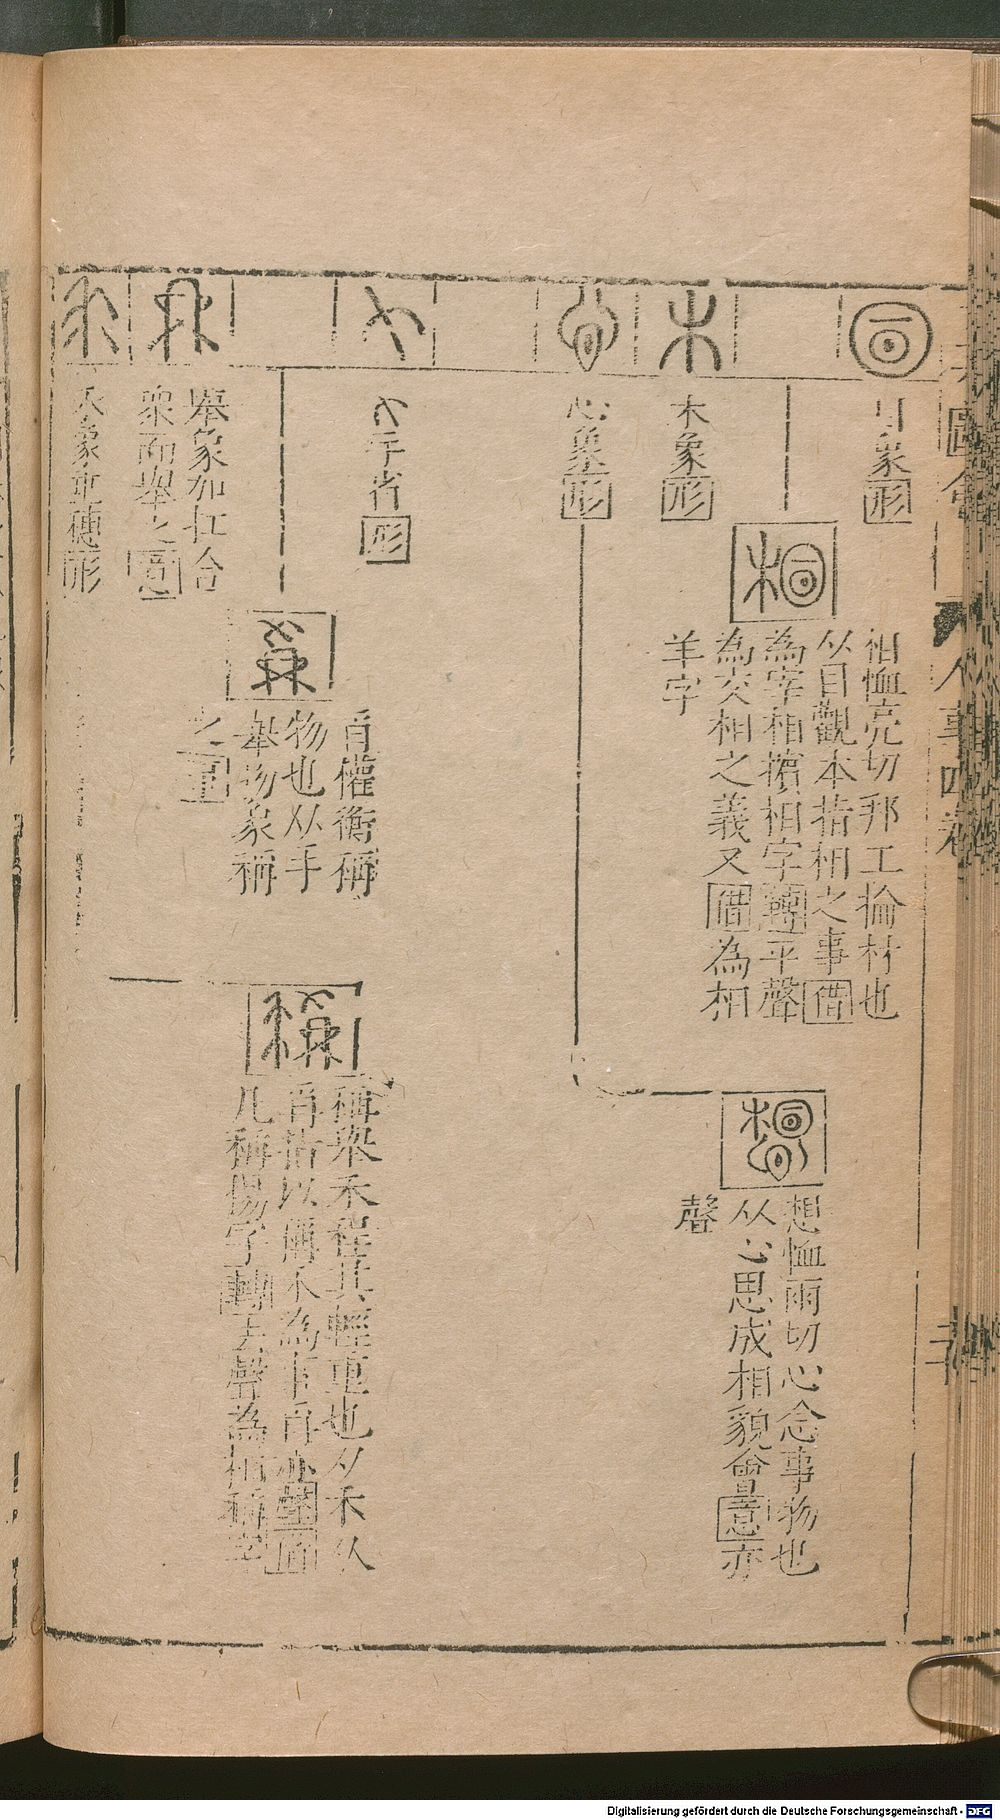 目象形
木象形
心象形
相恤亮切邦工掄材也
从目觀木指相之事借
為宰相擯相字轉平聲
為交相之義又借為相
羊字
想恤兩切心念事物也
从心思成相貌會意亦
聲
又手省形
舉象加扛合
眾而舉之意
禾象垂穗形
爯權衡稱
物也从手
舉物象稱
之
稱舉禾程其輕重也夕禾从
爯指以
凡稱揚字轉去聲為相稱字
圖會
人事四卷
Digitalisierung gefördert durch die Deutsche Forschungsgemeinschaft - DFG